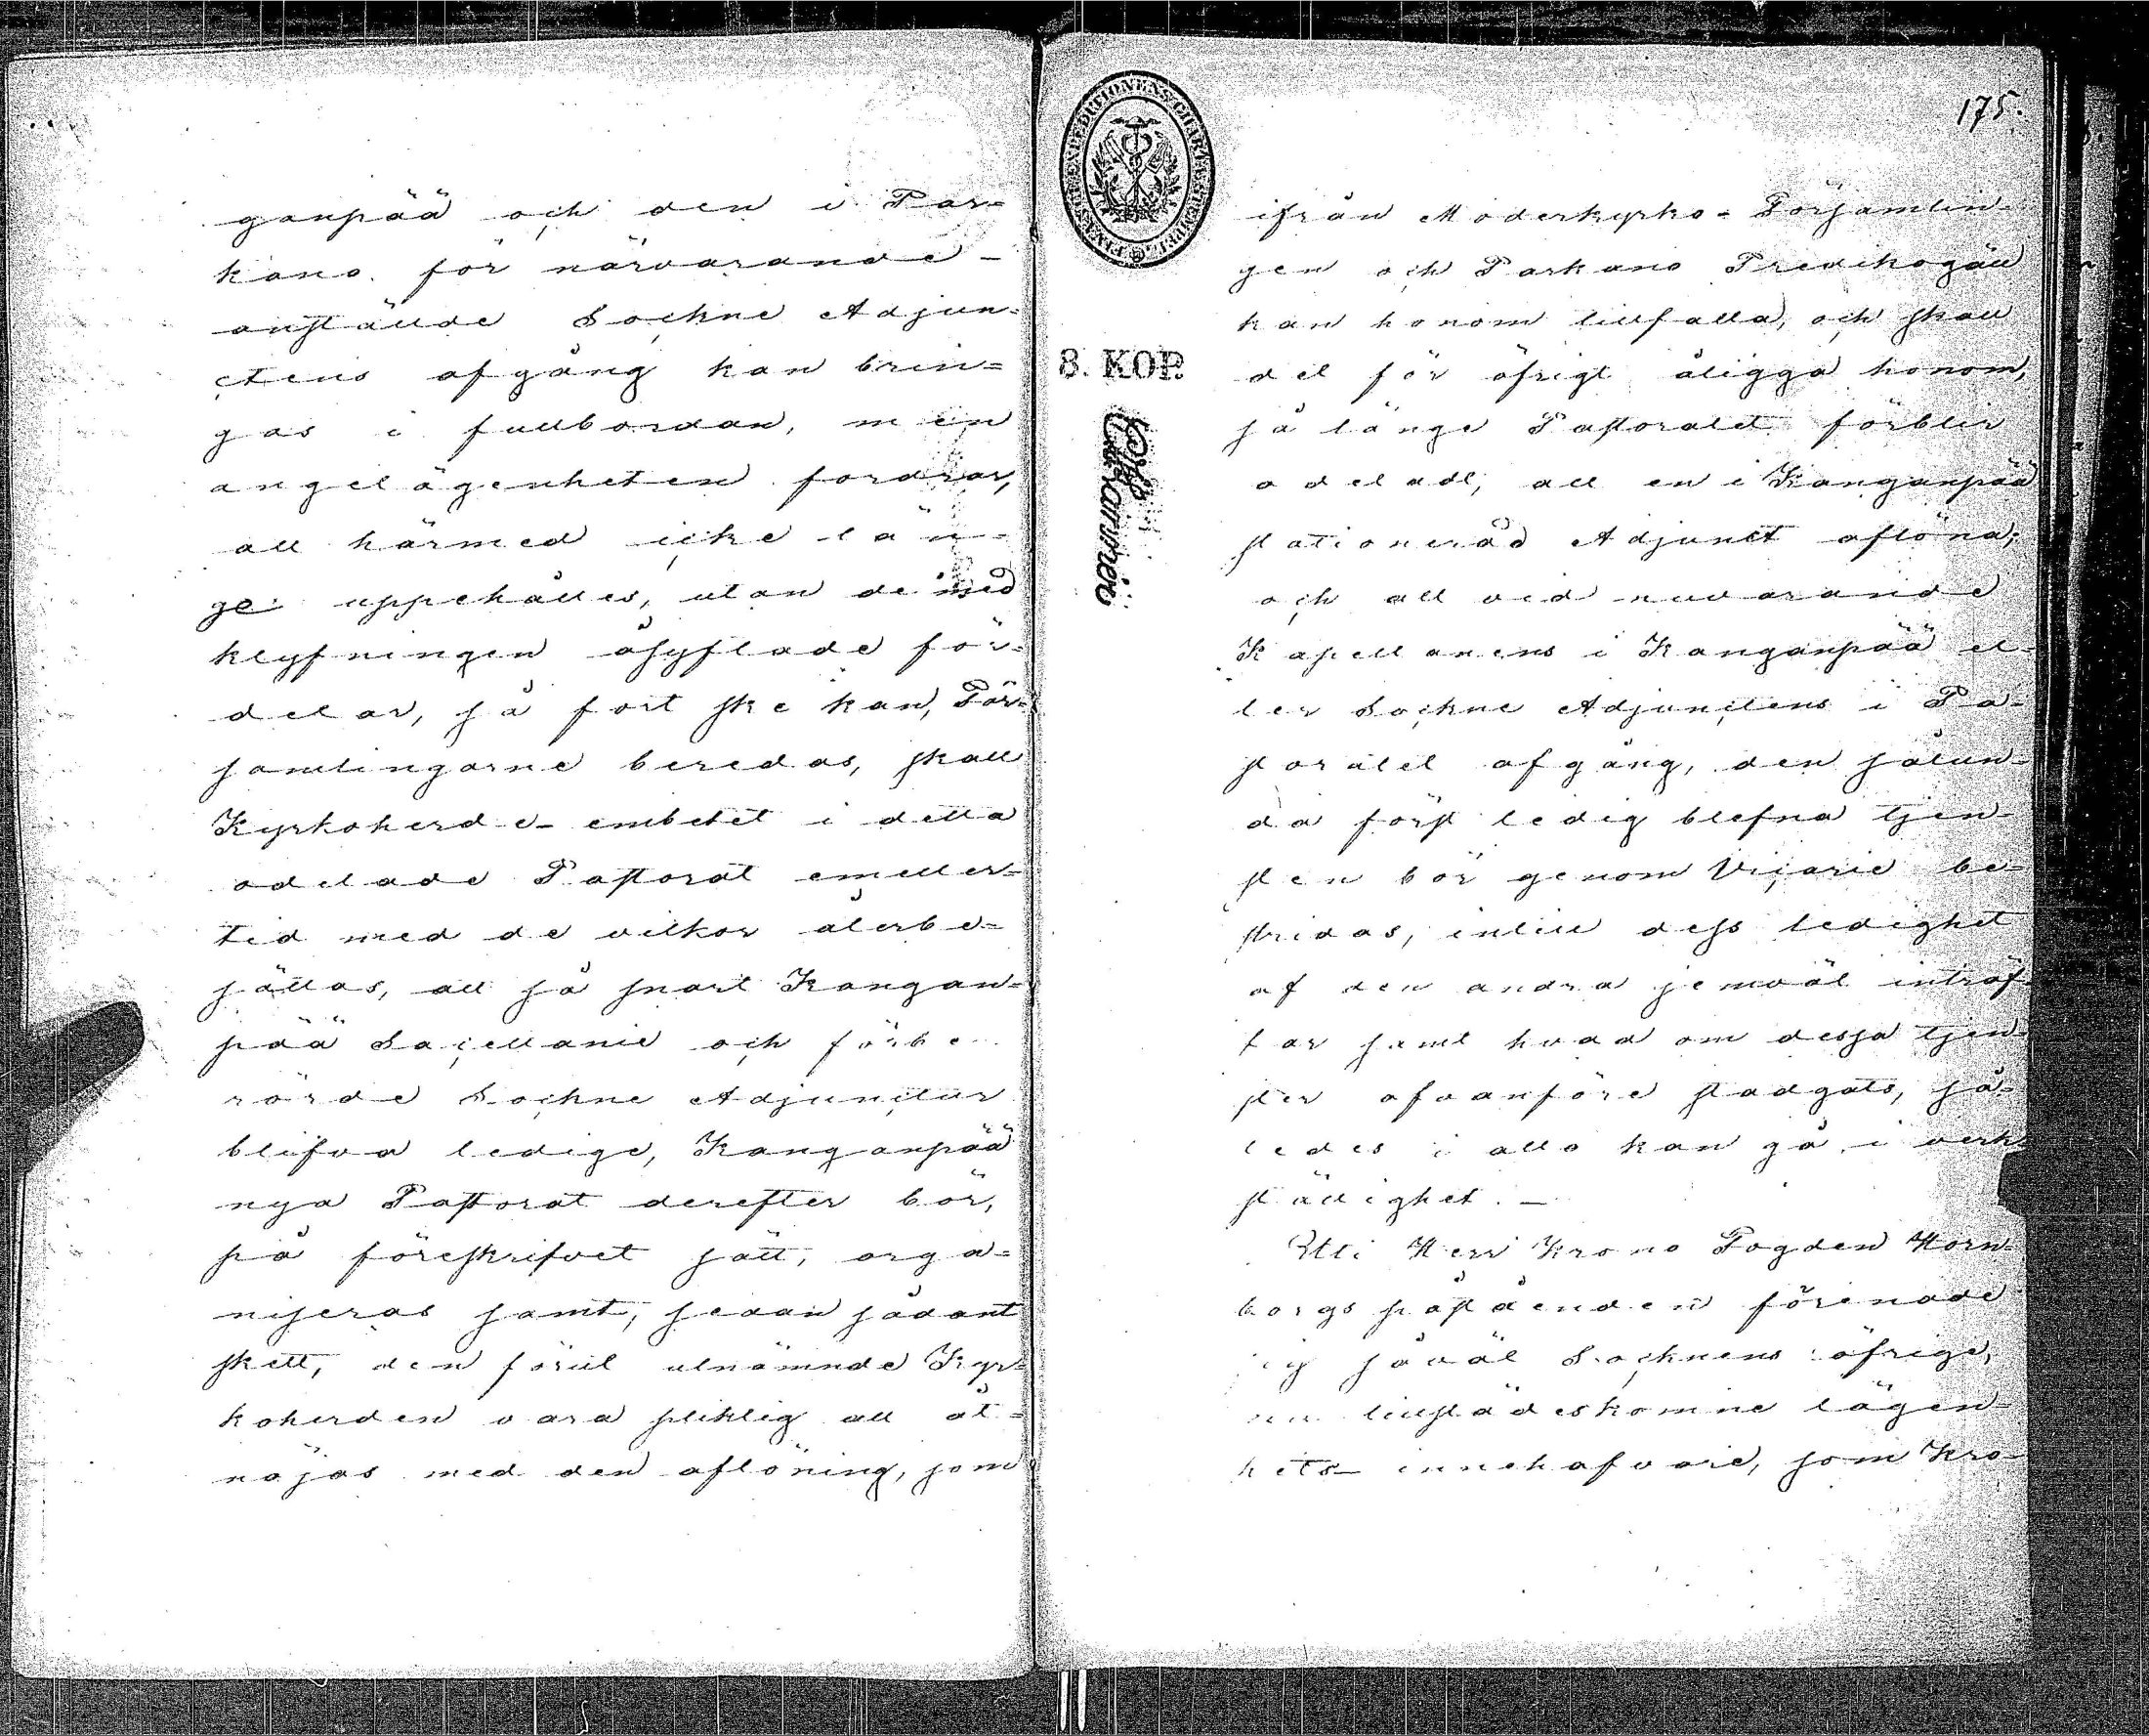 ganpää och den i Par-
kano för närvarande
anställde Sockne Adjun-
ctens afgång kan brin-
gas i fullbordan, men
angelägenheten fordrar,
att härmed icke län-
ge uppehålles, utan de med
klyfningen åsyftade för-
delar, så fort ske kan, För-
samlingarne beredas, skall
Kyrkoherde-embetet i detta
odelade Pastorat emeller-
tid med de vilkor återbe-
sättas, att så snart Kangan-
pää Sacellanie och förbe-
rörde Sockne Adjunctur
blifva ledige, Kanganpää
nya Pastorat derefter bör,
på föreskrifvet sätt, orga-
niseras samt, sedan sådant
skett, den förut utnämnde Kyr-
koherden vara pliktig att åt-
nöjas med den aflöning, som
175.
8. KOP.
ifrån Moderkyrko-Församlin-
gen och Parkano Predikogäll
kan honom tillfalla, och skall
det för öfrigt åligga honom,
så länge Pastoratet förblir
odeladt, att en i Kanganpää
stationerad Adjunct aflöna;
och att vid nuvarande
Kapellanens i Kanganpää el-
ler Sockne Adjunctens i Pa-
storatet afgång, den sålun-
da först ledig blefna tjen-
sten bör genom Vicarie be-
stridas, intill dess ledighet
af den andra jemväl inträf-
far samt hvad om dessa tjen-
ster ofvanföre stadgats, så-
ledes i allo kan gå i verk-
ställighet. —
Uti Herr Krono Fogden Horn-
borgs påstående förenade
sig såväl Socknens öfrige,
nu tillstädeskomne lägen-
hets-innehafvare, som Kro-